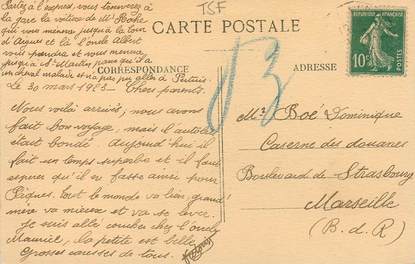 Partez à l'express, vous trouverez à
la gare la voiture de Mr Bothe
qui vous mènera jusqu'à la tour
d'Aigues et là l'oncle Albert
vous prendra et vous mènera
jusqu'à St-Martin, parce qu'il a
un cheval malade et n'a pas pu aller à Pertuis
TSF
CARTE POSTALE
CORRESPONDANCE
ADRESSE
10c
Le 30 mars 1923 – Chers parents.
Nous voilà arrivés ; nous avons
fait bon voyage, mais l'autobus
était bondé. Aujourd'hui il
fait un temps superbe et il faut
espérer qu'il en fasse ainsi pour
Pâques. Tout le monde va bien, grand'
mère va mieux et va se lever.
Je suis allé coucher chez l'oncle
Maurice, la petite est belle
Grosses caresses de tous.
Mr Boé Dominique
Caserne des douanes
Boulevard de Strasbourg
Marseille
(B-d-R)